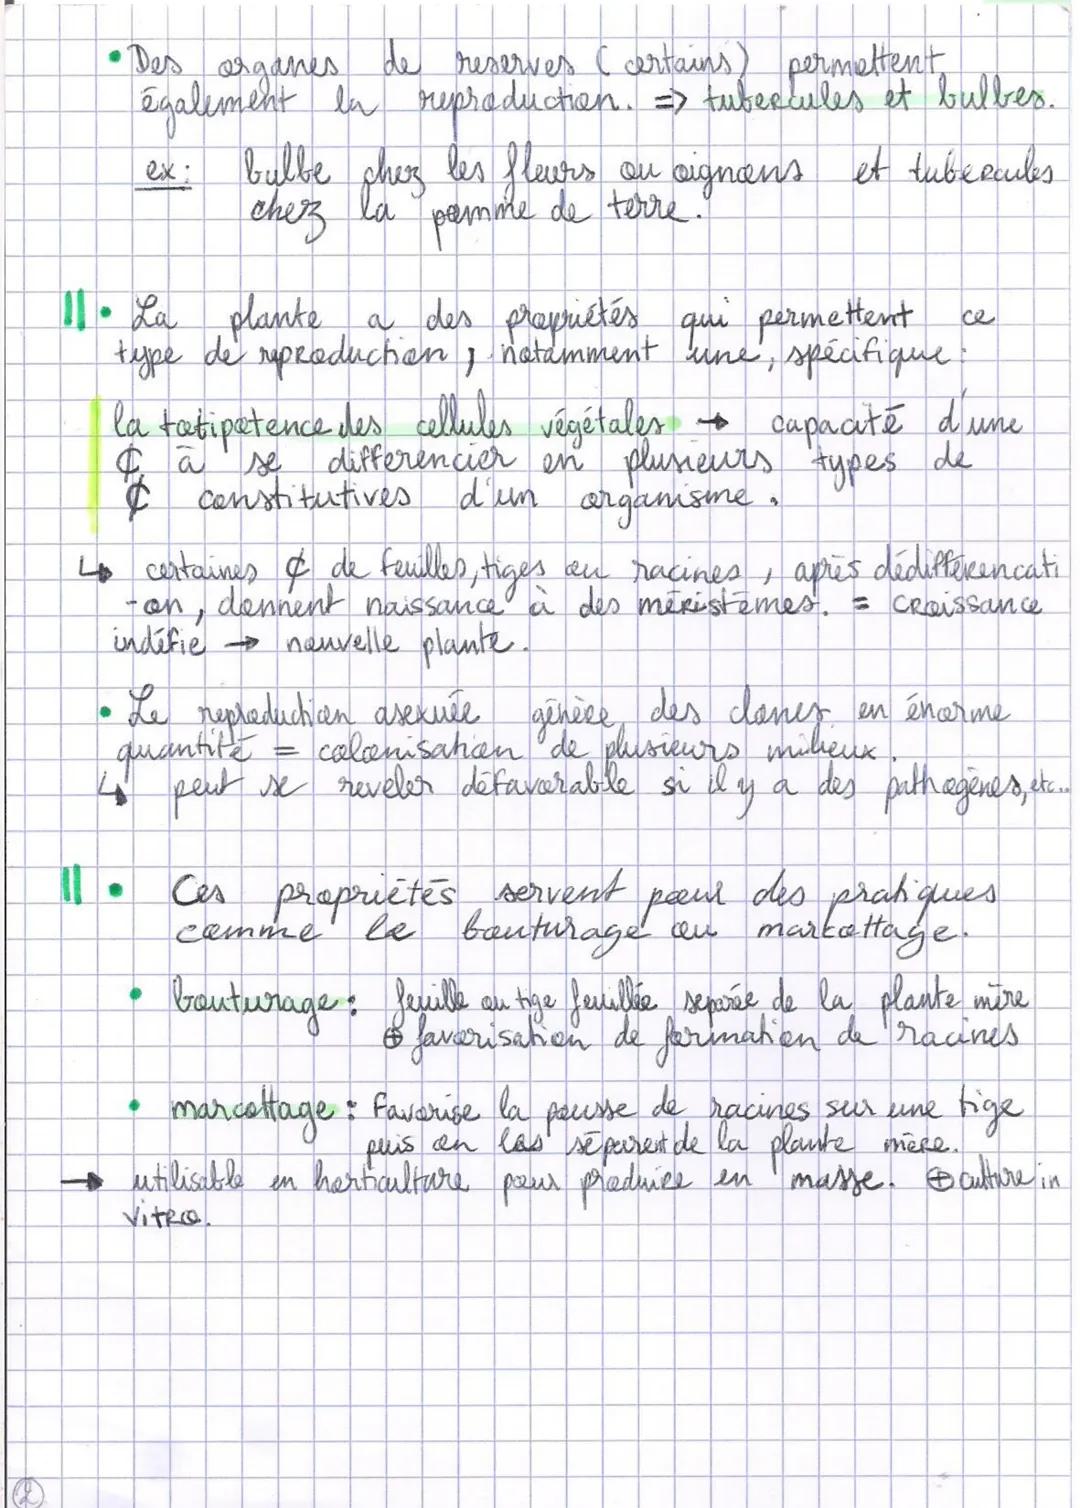 • Des organes de reserves (certains) permettent
également la reproduction. => tubercules et bulbes.
ex: bulbe chez les fleurs ou oignons et tubercules
chez la pomme de terre.
II • La plante a des propriétés qui permettent ce
type de reproduction, notamment une, spécifique :
la totipotence des cellules végétales → capacité d'une
₵ à se differencier en plusieurs types de
₵ constitutives d'un organisme.
↳ certaines ₵ de feuilles, tiges ou racines, après dédifférencati
-on, donnent naissance à des méristèmes. = croissance
indéfie → nouvelle plante.
• Le reproduction asexuée génère des clones en énorme
quantité = colonisation de plusieurs milieux.
↳ peut se reveler défavorable si il y a des pathogènes, etc...
II • Ces propriétés servent pour des pratiques
comme le bouturage ou marcottage.
• bouturage : feuille ou tige feuillée separée de la plante mère
⊕ favorisation de formation de racines
• marcottage : Favorise la pousse de racines sur une tige
puis on les séparent de la plante mère.
→ utilisable en horticulture pour produire en masse. ⊕ culture in
vitro.
2